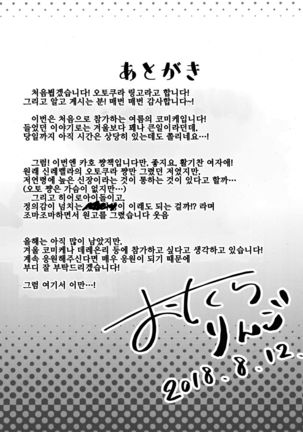 あとがき
처음뵙겠습니다! 오토쿠라 링고라고 합니다!
그리고 알고 계시는 분! 매번 매번 감사합니다~!
이번은 처음으로 참가하는 여름의 코미케입니다!
들었던 이야기로는 겨울보다 꽤나 큰일이라던데,
당일까지 아직 시간은 상당히 있는데도 쫄리네요…!
그럼! 이번엔 카호 짱책입니다만, 좋지요, 활기찬 여자애!
원래 신데렐라의 오토쿠라 짱만 그렸던 저였지만,
저연령에 높은 신장이라는 것이 통하는 것이 있다고 할까…
(오토 짱은 가슴이 없지만…)
그리고 히어로아이돌이고,
정의감이 넘치는 이 이래도 되는 걸까!? 라며
조마조마하면서 원고를 그렸습니다 웃음
올해는 아직 많이 남았지만,
겨울 코미케나 데레온리 등에 참가하고 싶다고 생각하고 있습니다!
계속 응원해주신다면 매우 응원이 되기 때문에
부디 잘 부탁드리겠습니다!
그럼 여기서 이만…!
おとくら
りんご
2018.8.12.